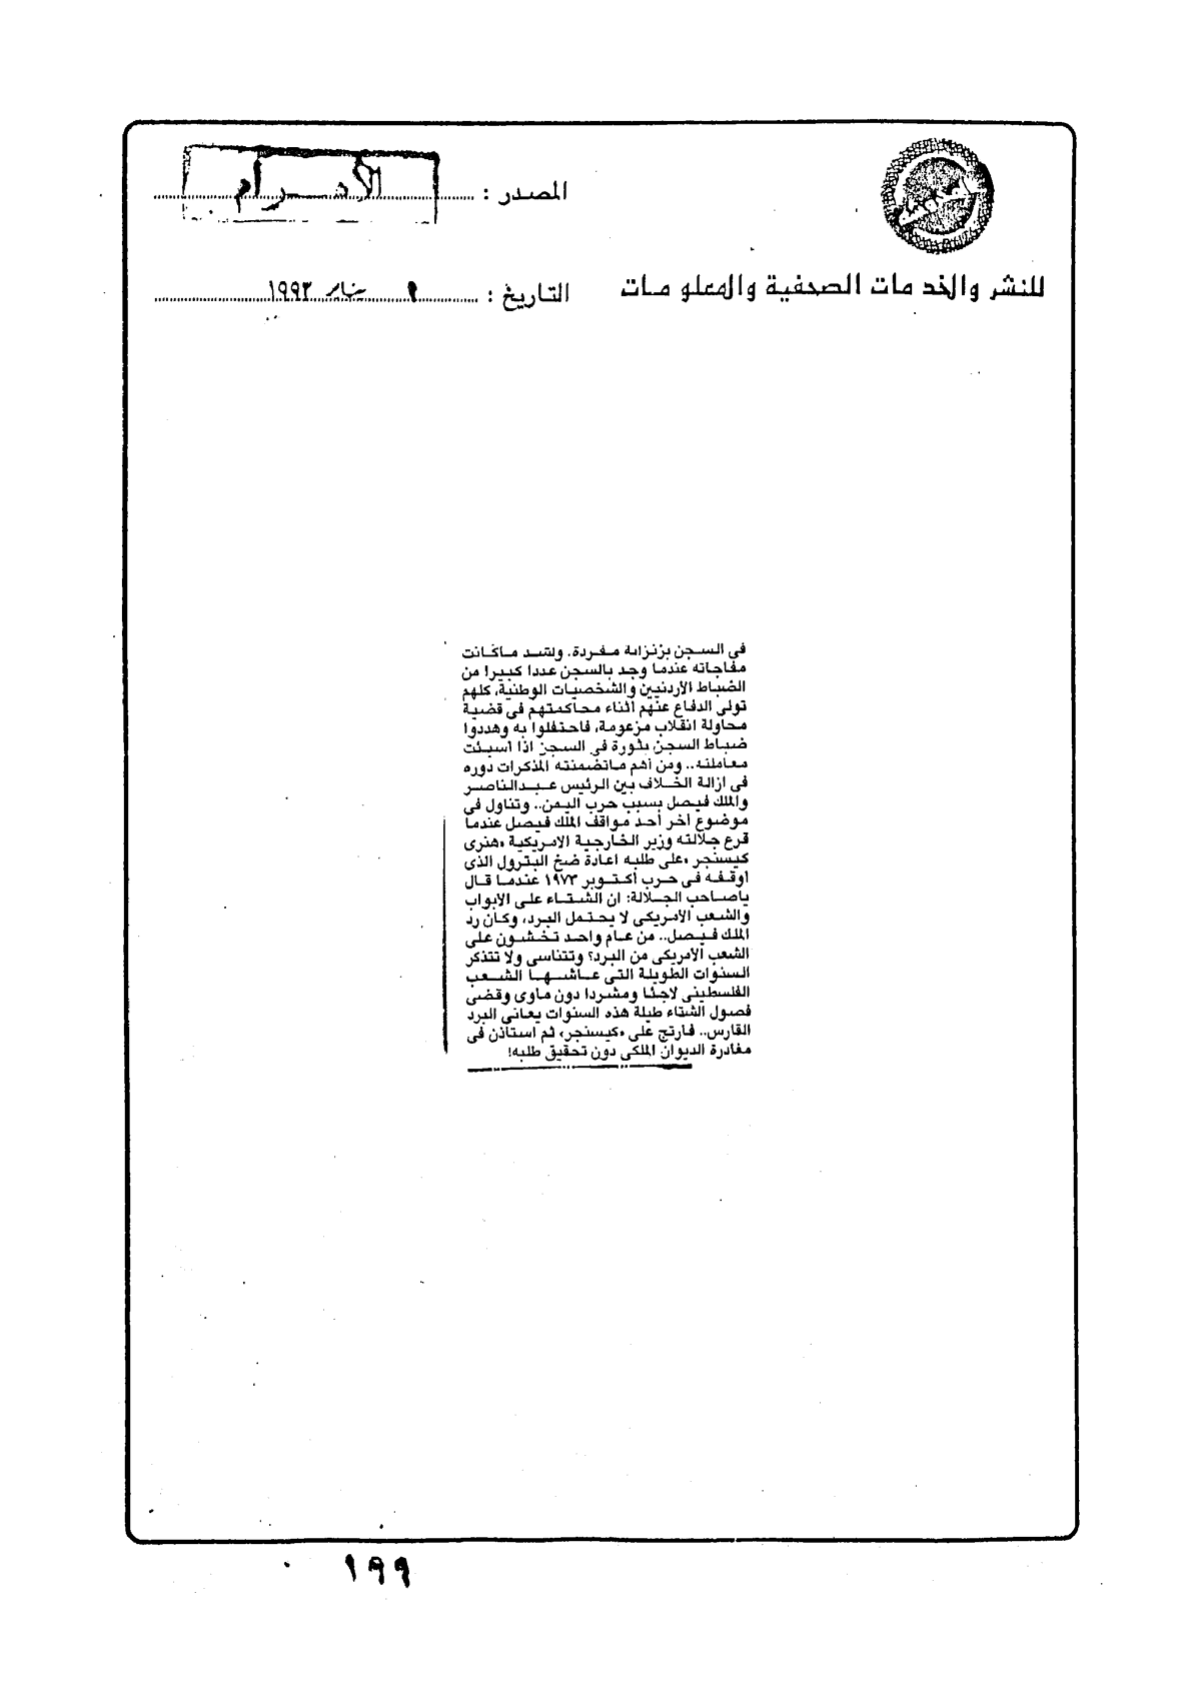 المصدر : الأهرام
للنشر والخدمات الصحفية والمعلومات
التاريخ : ٩ يناير ١٩٩٢
فى السجن بزنزانة مفردة. ولشد ماكانت
مفاجاته عندما وجد بالسجن عددا كبيرا من
الضباط الأردنيين والشخصيات الوطنية، كلهم
تولى الدفاع عنهم أثناء محاكمتهم فى قضية
محاولة انقلاب مزعومة، فاحتفلوا به وهددوا
ضباط السجن بثورة فى السجن اذا اسيئت
معاملته.. ومن أهم ماتضمنته المذكرات دوره
فى ازالة الخلاف بين الرئيس عبدالناصر
والملك فيصل بسبب حرب اليمن.. وتناول فى
موضوع آخر أحد مواقف الملك فيصل عندما
قرع جلالته وزير الخارجية الامريكية «هنرى
كيسنجر» على طلبه اعادة ضخ البترول الذى
اوقفه فى حرب أكتوبر ١٩٧٣ عندما قال
ياصاحب الجلالة: ان الشتاء على الابواب
والشعب الامريكى لا يحتمل البرد، وكان رد
الملك فيصل.. من عام واحد تخشون على
الشعب الأمريكى من البرد؟ وتتناسى ولا تتذكر
السنوات الطويلة التى عاشها الشعب
الفلسطينى لاجئا ومشردا دون ماوى وقضى
فصول الشتاء طيلة هذه السنوات يعانى البرد
القارس.. فارتج على «كيسنجر» ثم استاذن فى
مغادرة الديوان الملكى دون تحقيق طلبه!
١٩٩